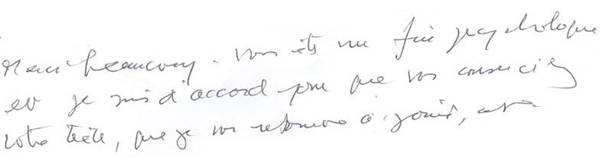 Merci beaucoup. Vous êts une fine psychologue
et je suis d'accord pour que vous conserviez
votre texte, que je vous retourne ci-joint,